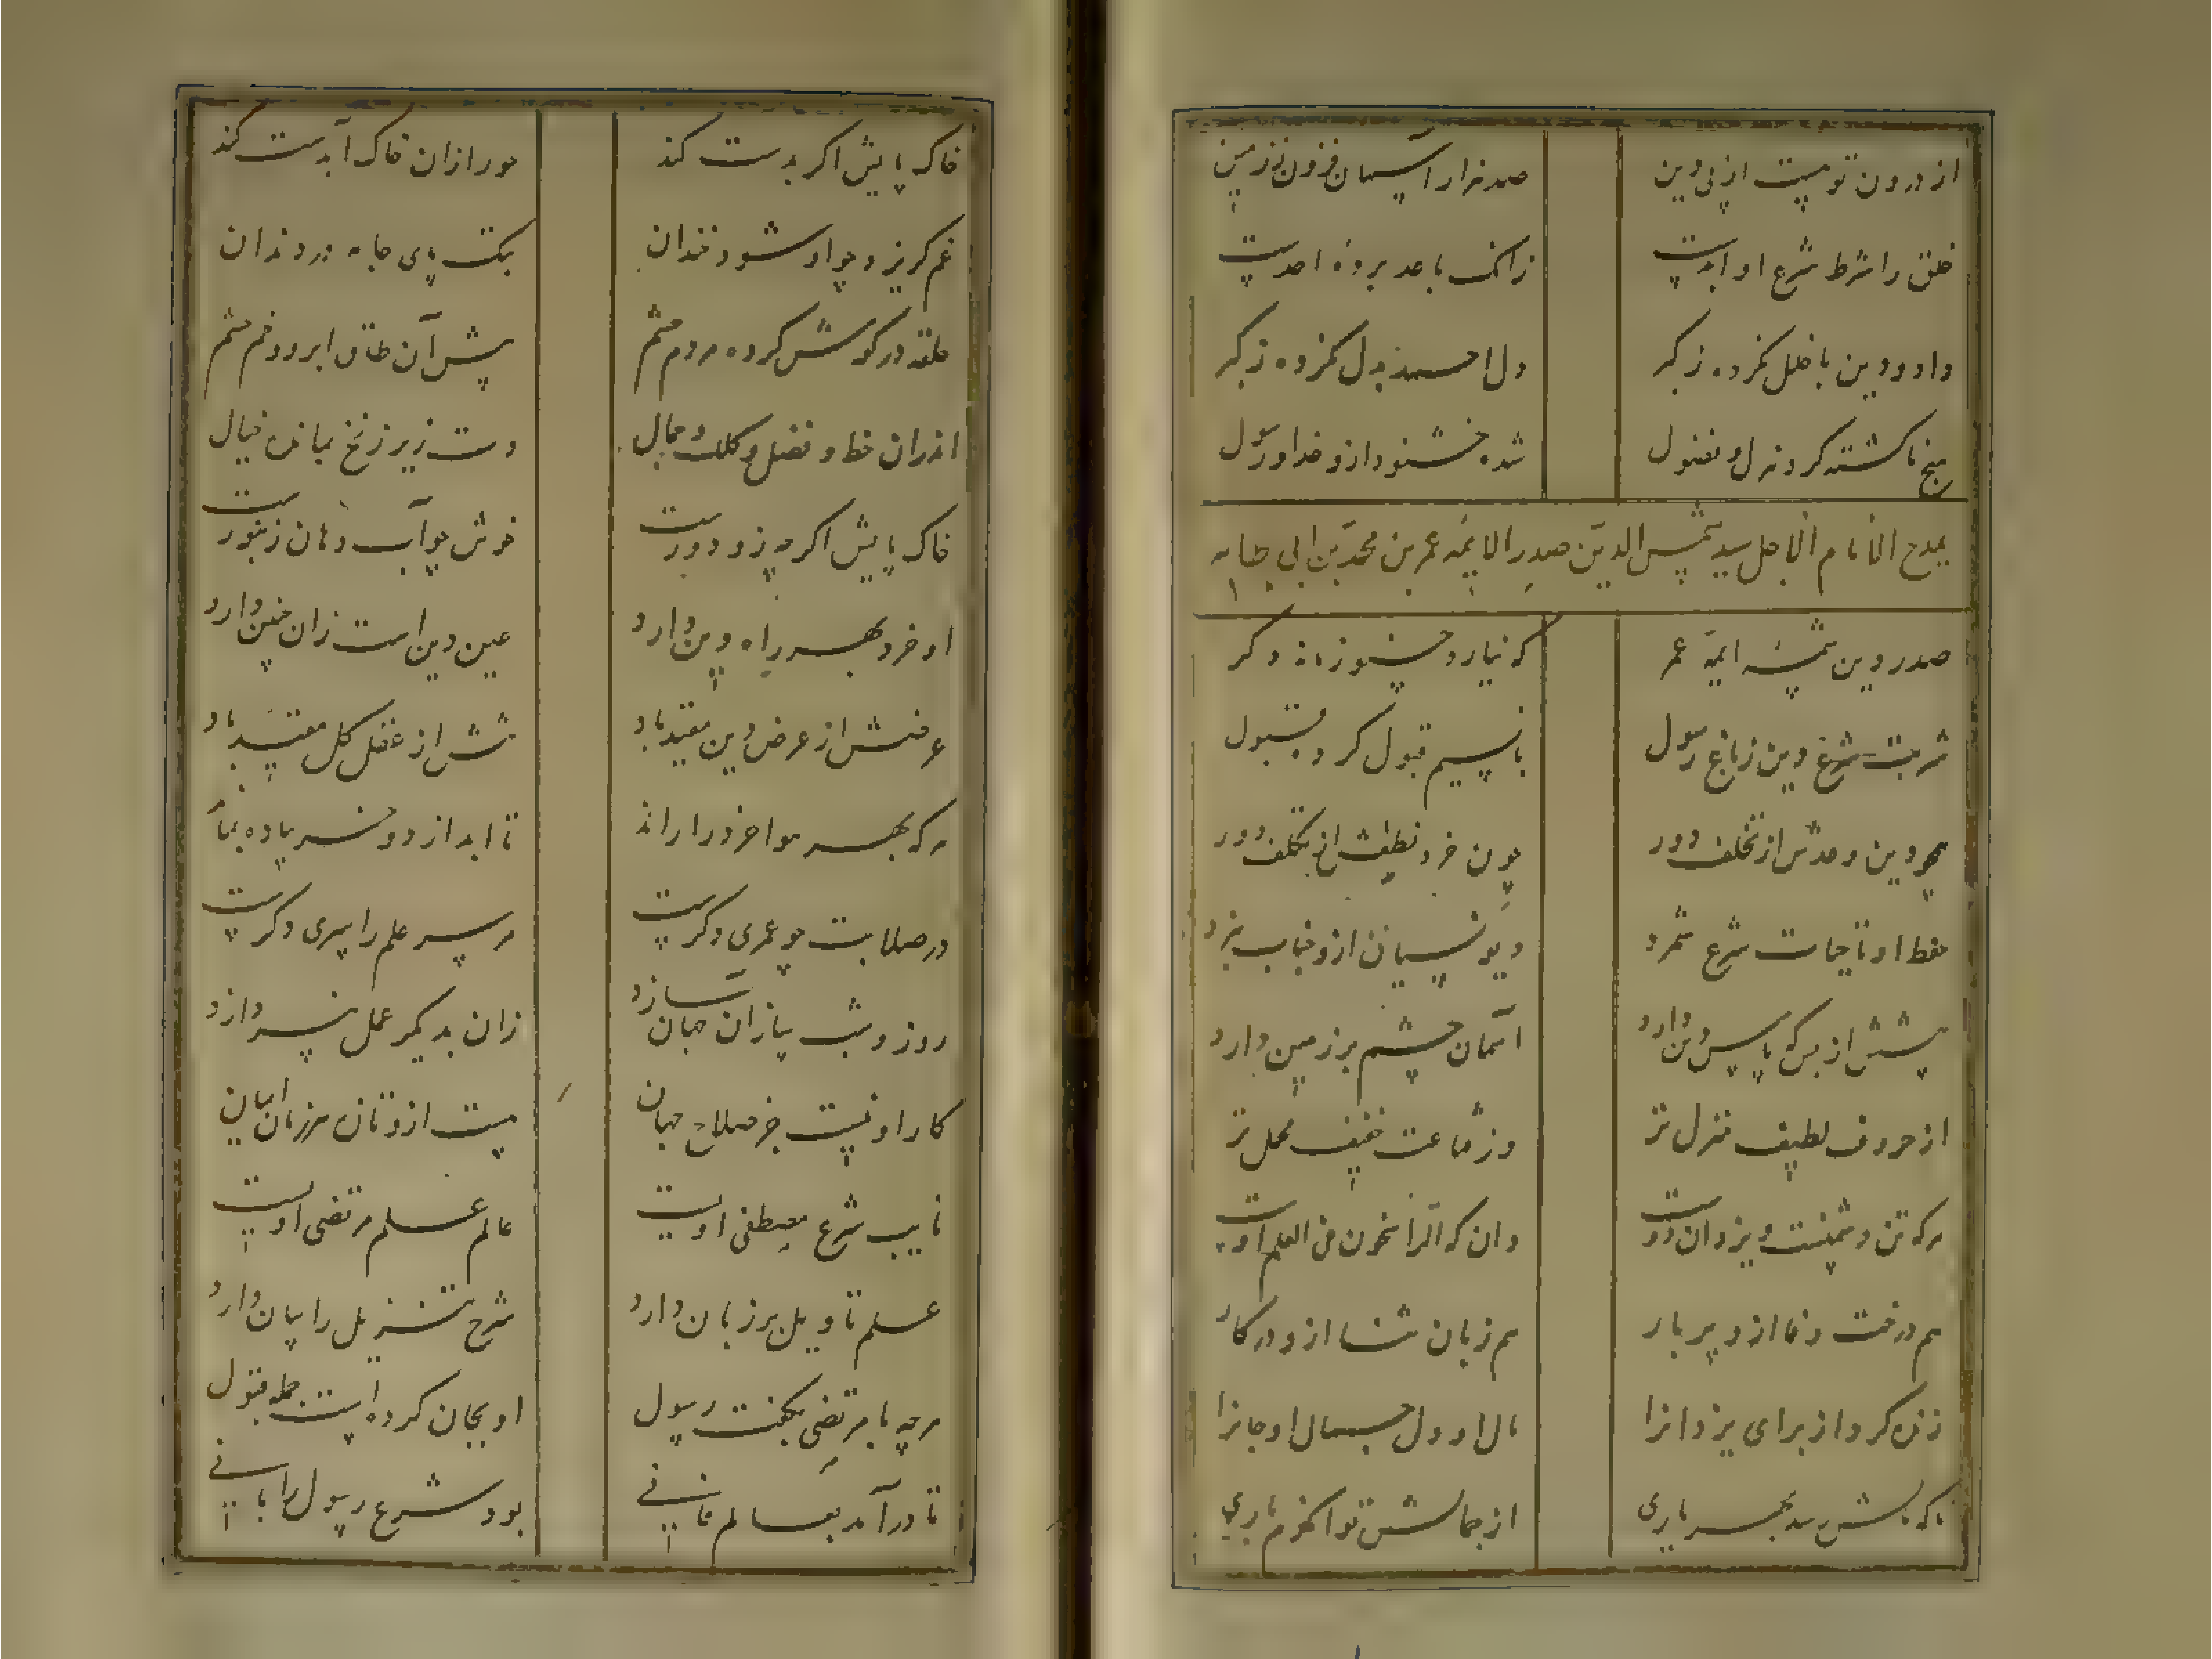 از درون تو هست از پی دین صد هزار آسمان فزون ز زمین
خلق را شرط شرع او ابدست زانک با صد بروزه احدست
داد و دین با خلل نکرده ز کبر دل احمد بدل نکرده ز کبر
هیچ ناکشته کرد نزل و فضول شده خشنود ازو خدا و رسول
بمدح الامام الاجل سید شمس الدین صدر الائمه عمر بن محمد بن ابی
صدر دین شمسه ایمه عمر که نیارد چنو زمانه دکر
شربت شرع دین ز باغ رسول با نسیم قبول کرده قبول
همچو دین وعدش از تخلف دور چون خرد نطقش از تکلف دور
حفظ او تا حیات شرع شمرد دیو نسیان ازو جناب ببرد
پشتش از بس که پاس دین دارد آسمان چشم بر زمین دارد
از حروف لطیف منزل تر وز قناعت خفیف محمل تر
هرکه تن دشمنست و یزدان دوست دان که الراسخون فی العلم اوست
هم درخت دعا ازو پر بار هم زبان ثنا ازو در کار
زنده کرد از برای یزدانرا مال او دل جمال او جانرا
هرکه نامش رسد بهر باری از جمالش توانکرم باری
خاک پایش اکر بدست کند حور ازان خاک آبدست کند
غم کریزد چو او شود خندان بکتف پای جامه در دندان
حلقه در کوش کرده مردم چشم پیش آن طاق ابرو و خم چشم
اندران خط و فضل و کلک و جمال دست زیر زنخ بمانده خیال
خاک پایش اکرچه زو دورست خوش چو آب دهان زنبورست
او خرد بهر راه دین دارد عین دین است زان چنین دارد
عرضش از عرض دین مقید باد نفسش از عقل کل مقید باد
هرکه بهر هوا خرد را راند تا ابد از دو خر پیاده بماند
در صلابت چو عمری دکرست هر سر علم را سری دکرست
روز و شب ساز آن جهان سازد زان بدیکر عمل نپردازد
کار او نیست جز صلاح جهان هست ازو تازه مرزبان ایمان
نایب شرع مصطفی اوست عالم علم مرتضی اوست
علم تاویل بر زبان دارد شرح تنزیل را بیان دارد
هرچه با مرتضی بکفت رسول او بجان کرده است جمله قبول
تا درآمد بعالم فانی بود شرع رسول را بانی